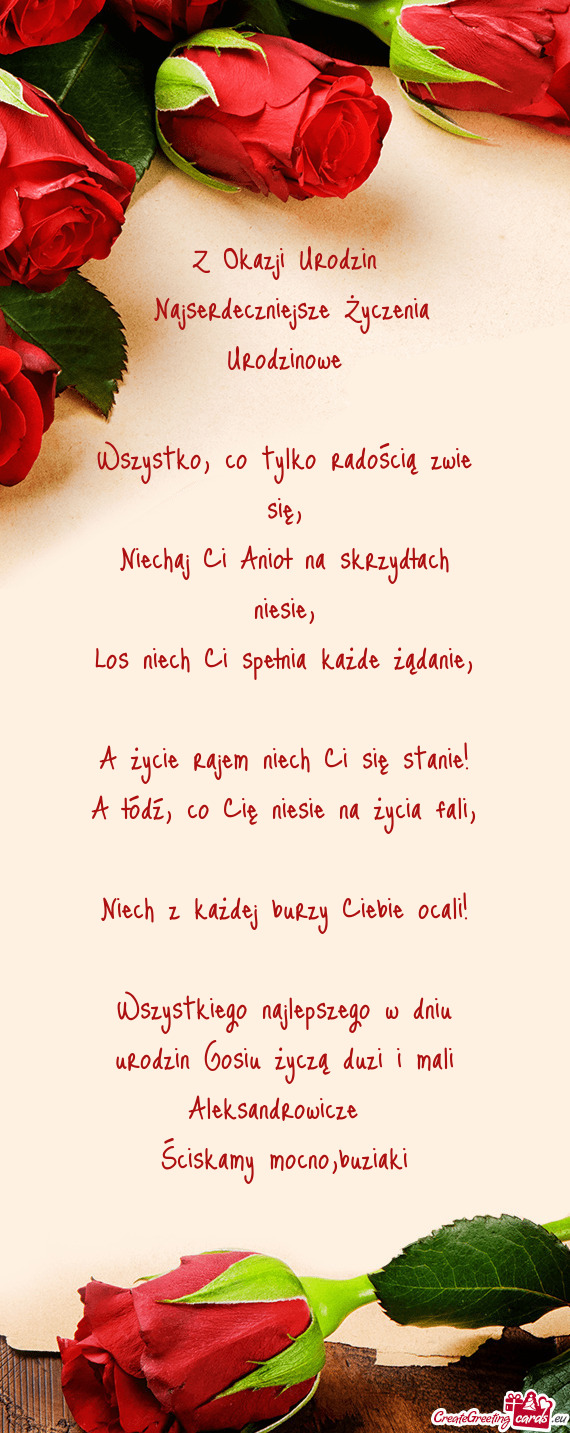 Z Okazji Urodzin
Najserdeczniejsze Życzenia
Urodzinowe
Wszystko, co tylko radością zwie
się,
Niechaj Ci Anioł na skrzydłach
niesie,
Los niech Ci spełnia każde żądanie,
A życie rajem niech Ci się stanie!
A łódź, co Cię niesie na życia fali,
Niech z każdej burzy Ciebie ocali!
Wszystkiego najlepszego w dniu
urodzin Gosiu życzą duzi i mali
Aleksandrowicze
Ściskamy mocno,buziaki
CreateGreeting cards .eu